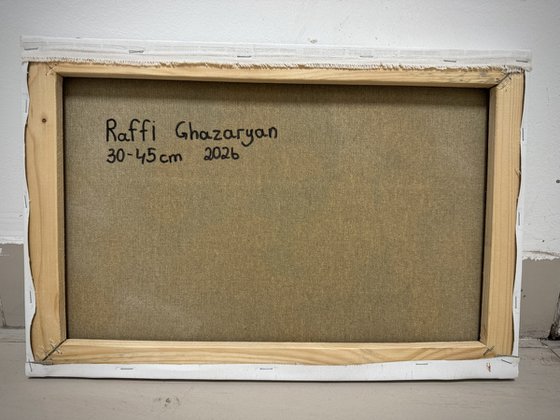 Raffi Ghazaryan
30-45cm 2026